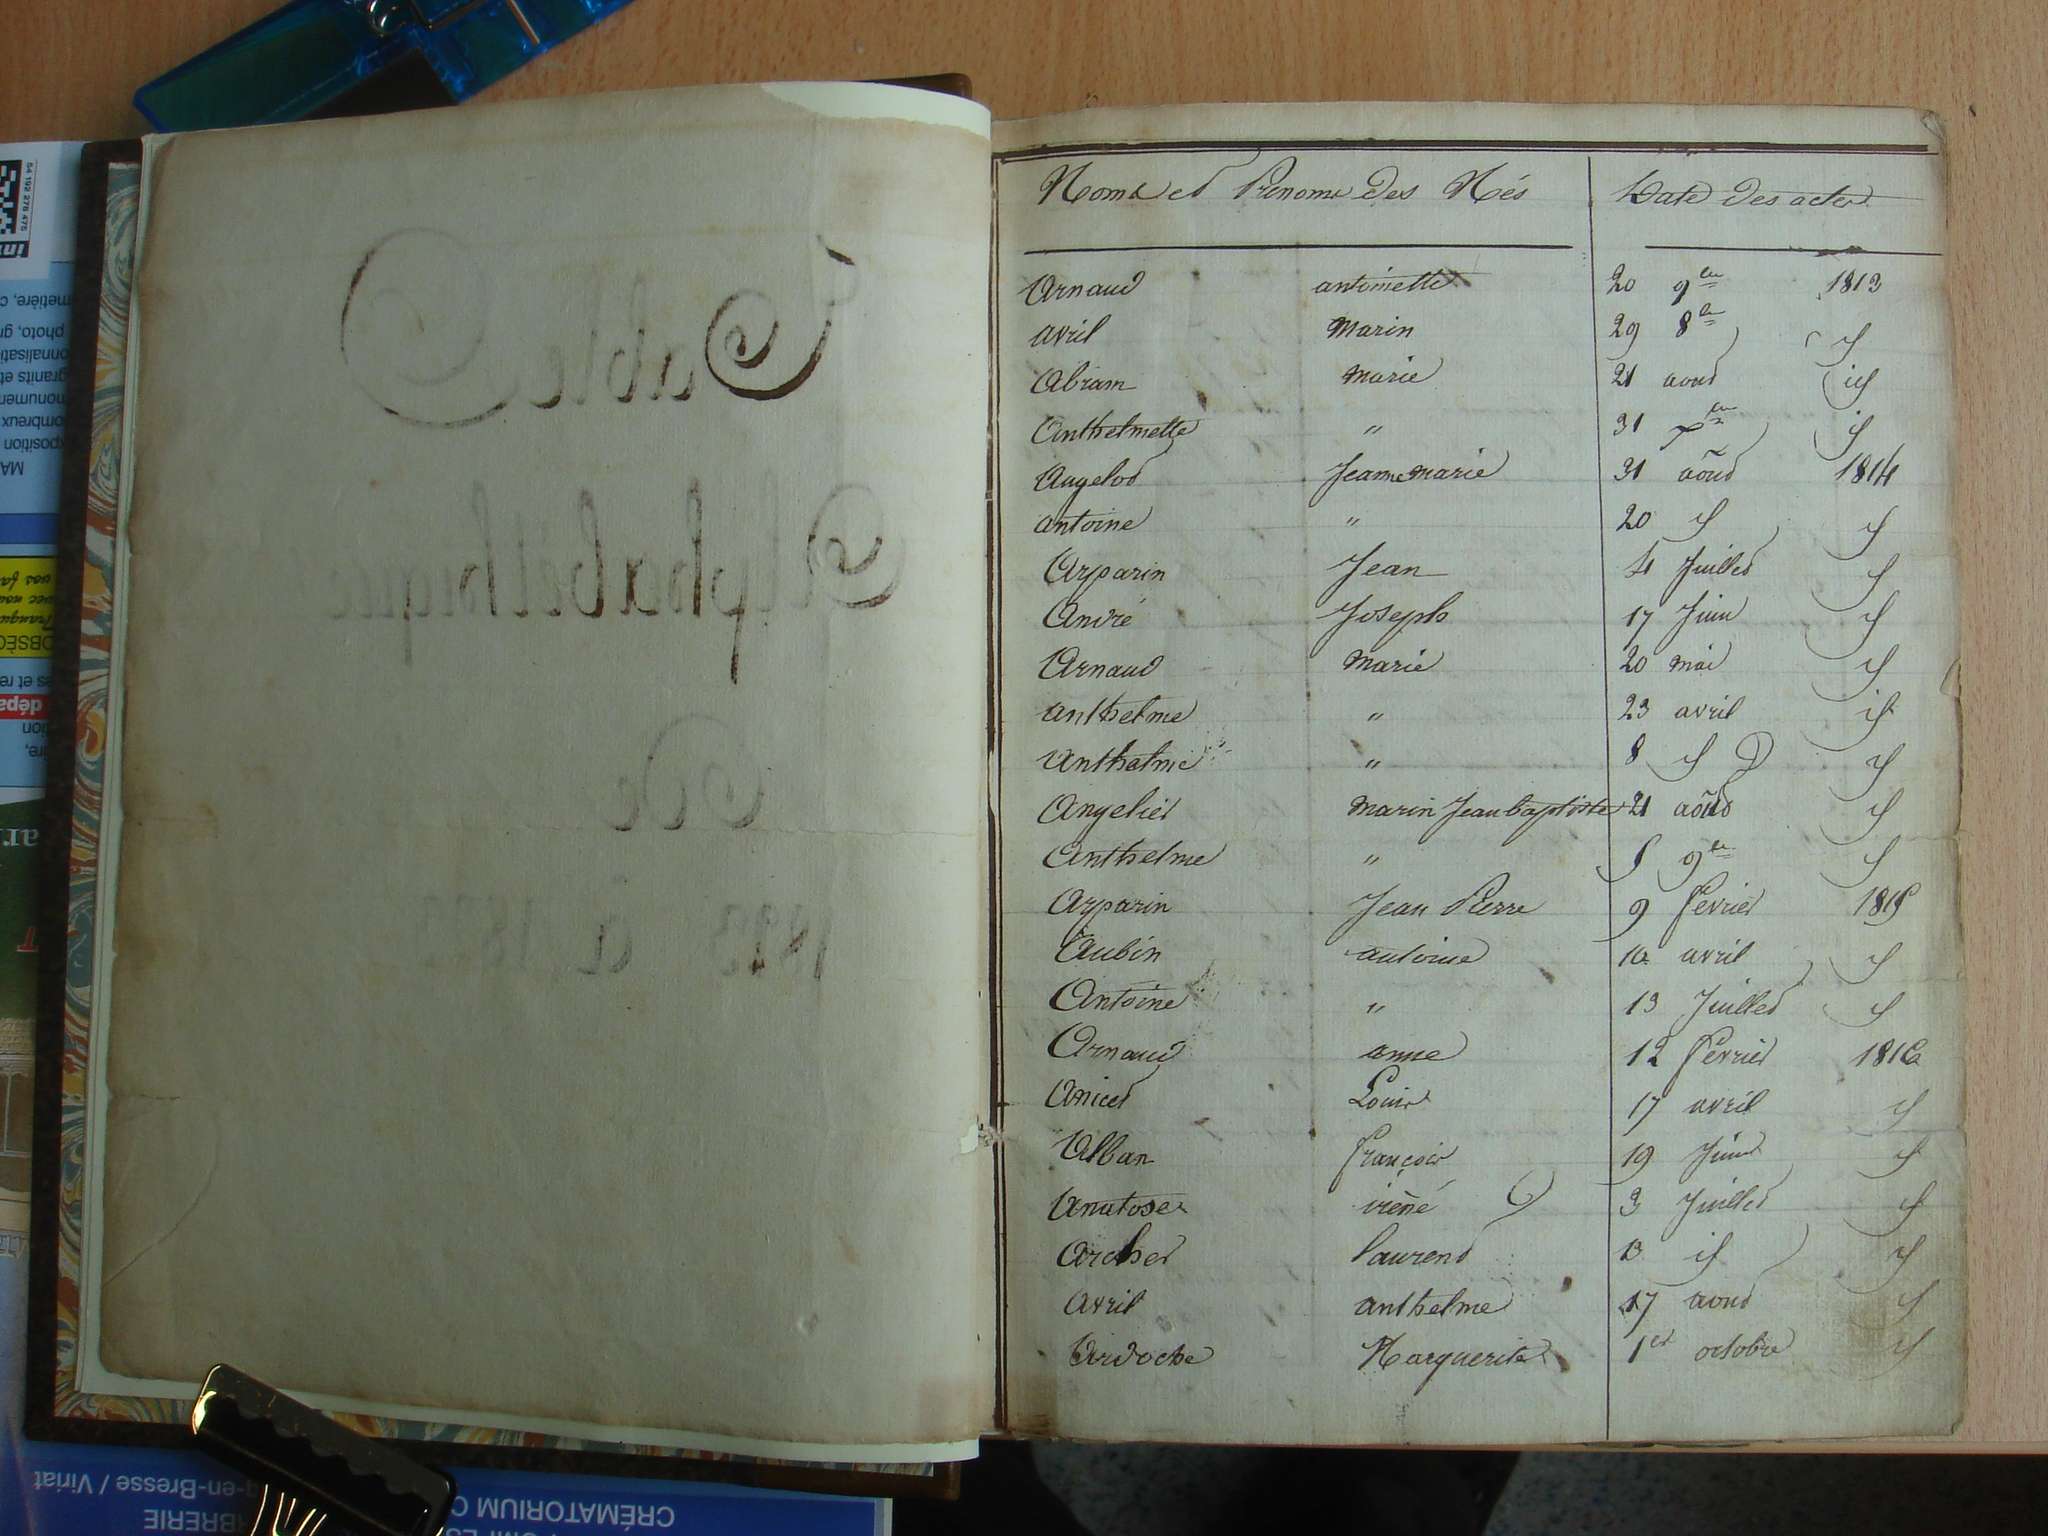 Table
Alphabéthique
de
Noms et Prénoms des Nés Date des actes
Arnaud antoinette 20 9bre 1813
avril Marin 29 8bre id
Abram Marie 21 aout id
Anthelmette " 31 id
Angelot Jeanne marie 31 aout 1814
antoine " 20 id id
Arparin Jean 4 Juillet id
André Joseph 17 Juin id
Arnaud Marie 20 mai id
anthelme " 23 avril id
Anthelme " 8 id id
Angelier Marin Jean baptiste 21 aout id
Anthelme " 5 9bre id
Arparin Jean Pierre 9 fevrier 1815
Aubin antoine 16 avril id
Antoine " 13 Juillet id
Arnaud anne 12 fevrier 1816
Anicet Louis 17 avril id
Alban françois 19 Juin id
irêné 3 Juillet id
Archer laurent 13 id id
Avril anthelme 17 aout id
Ardoche Marguerite 1er octobre id
CRÉMATORIUM
g-en-Bresse / Viriat